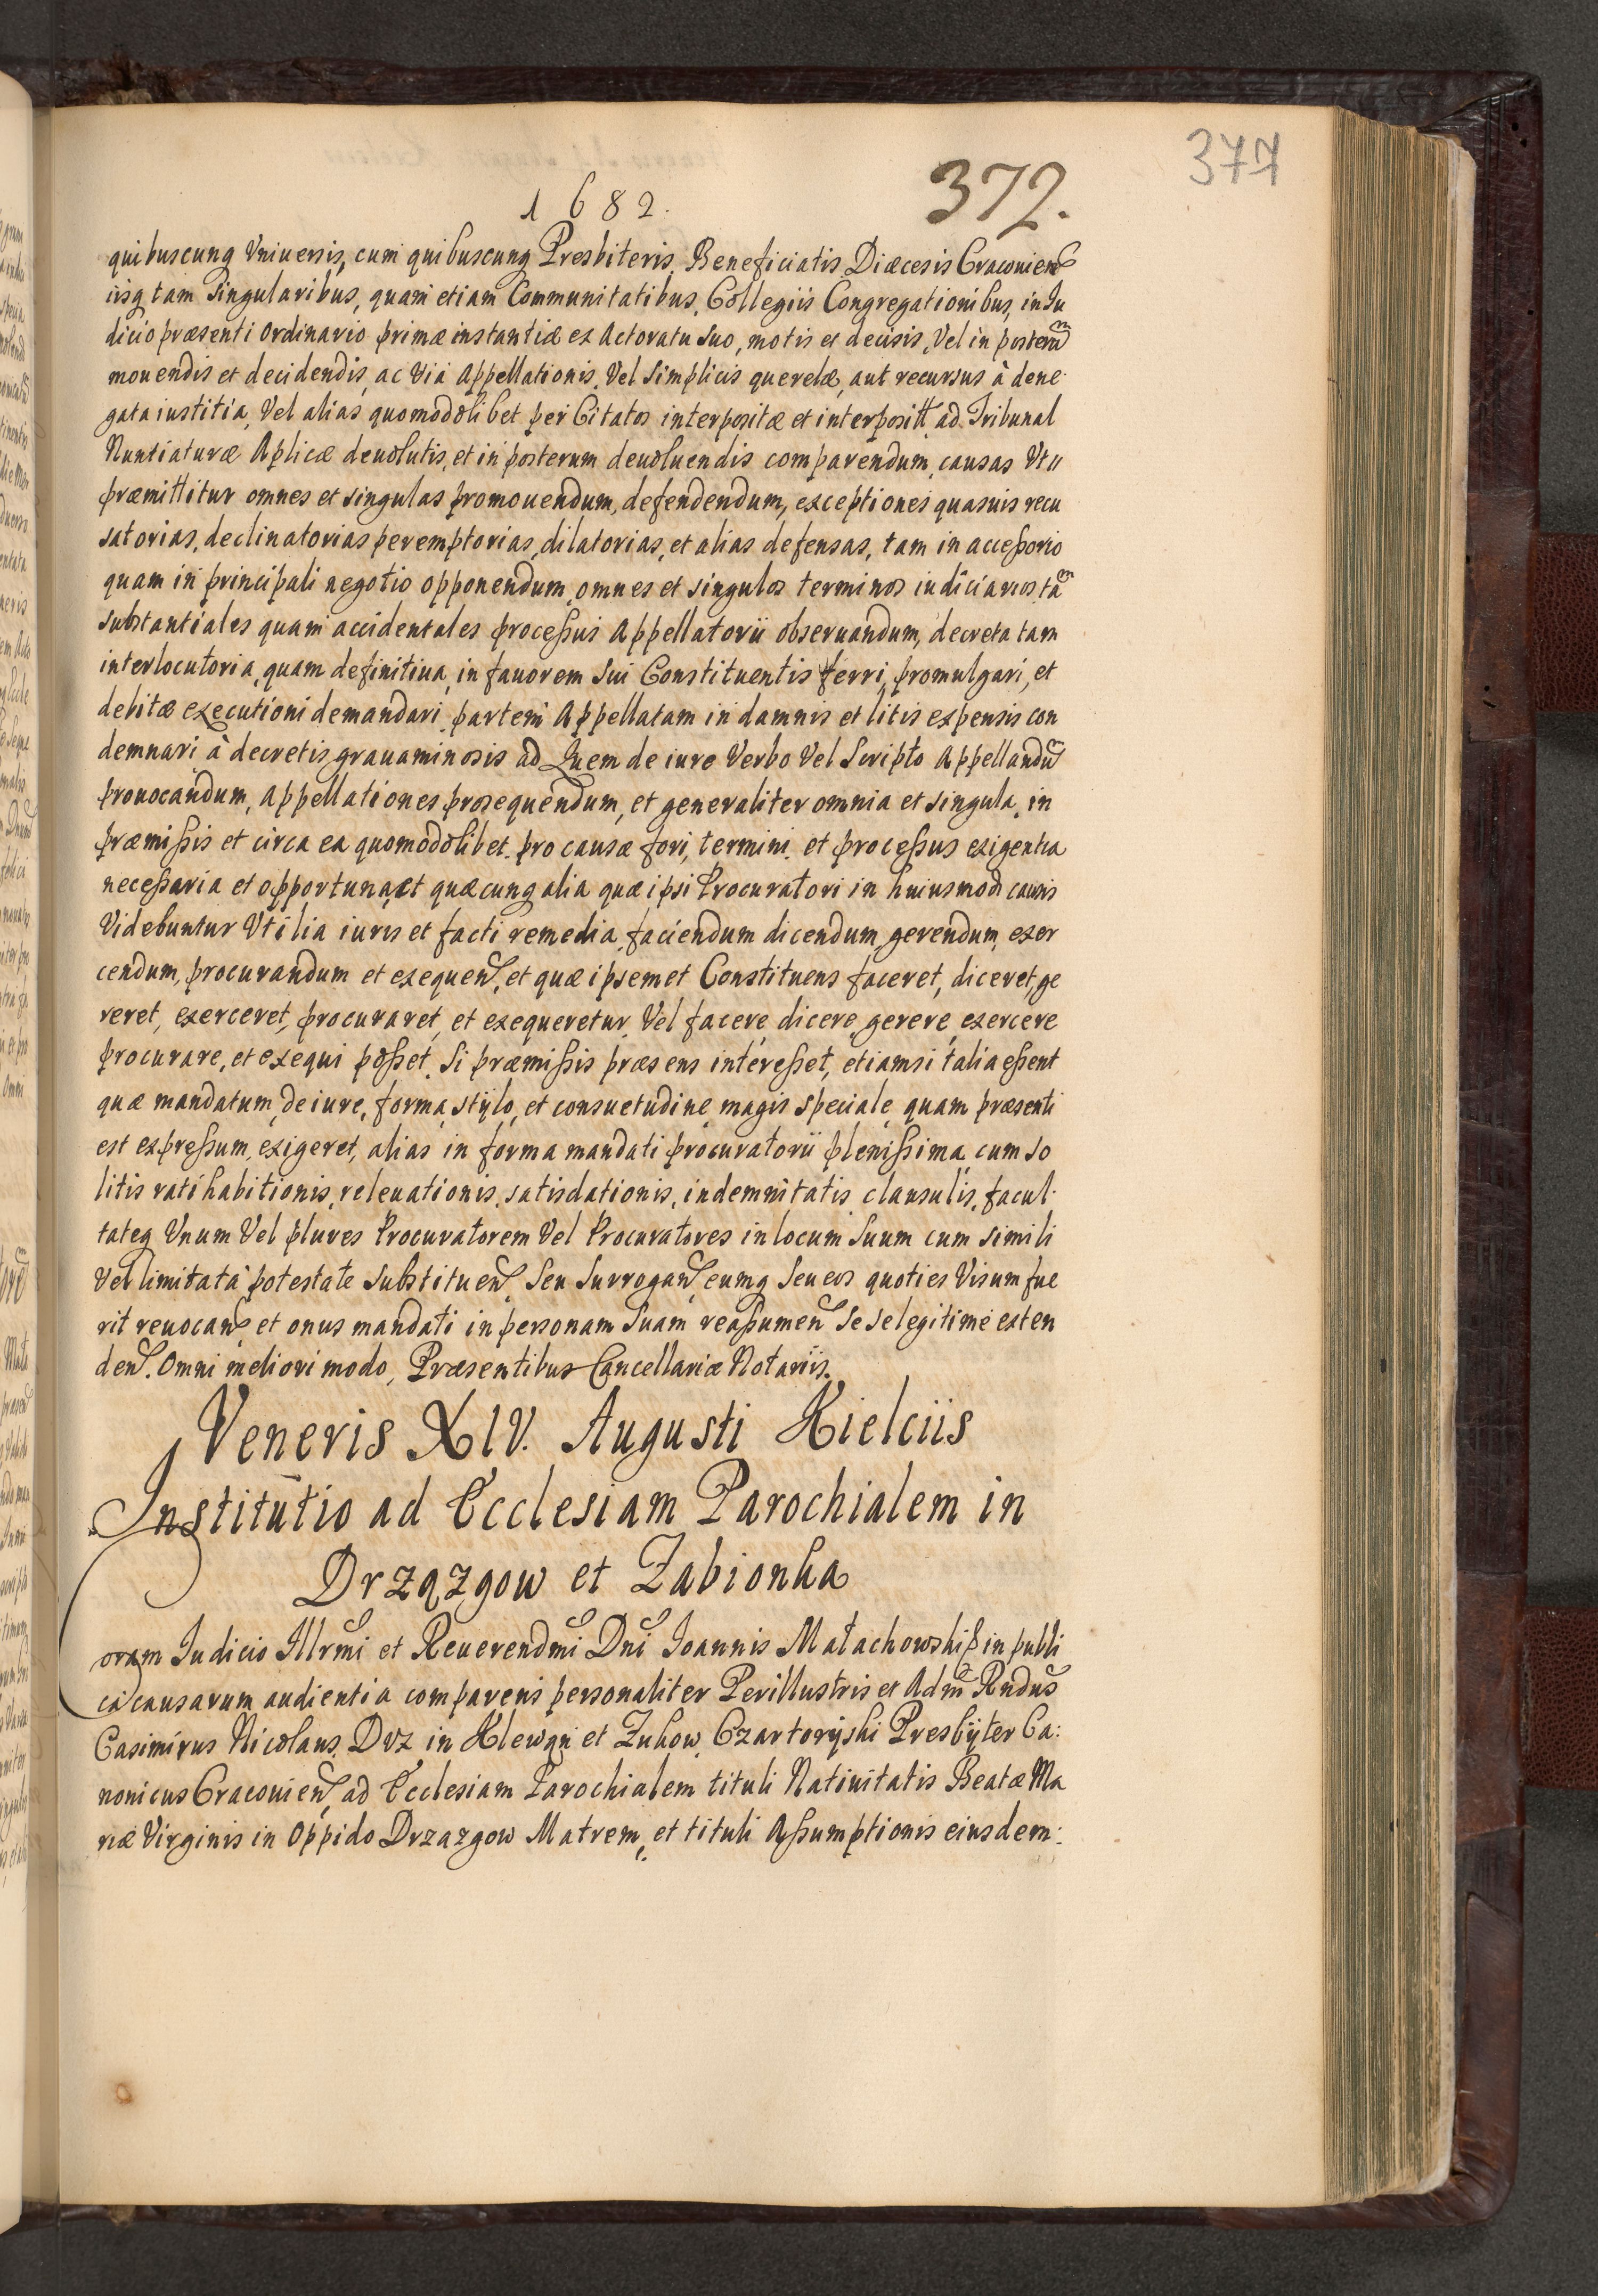 377
372.
1682.
quibuscunq Vniuersis, cum quibuscunq Presbiteris, Beneficiatis Diæcesis Cracouien
iisq tam Singularibus, quam etiam Communitatibus, Collegiis Congregationibus, in Iu
dicio præsenti Ordinario primæ instantiæ ex Actoratu suo, motis et decisis, Vel in posterum
mouendis et decidendis, ac Via Appellationis, Vel Simplicis querelæ, aut recursus à dene
gata iustitia, Vel alias quomodolibet per Citatos interpositæ et interposit ad Tribunal
Nuntiaturæ Aplicæ deuolutis, et in posterum deuoluendis comparendum, causas Vt
præmittitur omnes et singulas promouendum, defendendum, exceptiones quasuis recu
satorias, declinatorias peremptorias, dilatorias, et alias defensas, tam in acceßorio
quam in principali negotio opponendum, omnes et singulos terminos iudiciarios tam
substantiales quam accidentales proceßus Appellatorii obseruandum, decreta tam
interlocutoria, quam definitiua, in fauorem sui Constituentis ferri, promulgari, et
debitæ executioni demandari, partem Appellatam in damnis et litis expensis con
demnari à decretis grauaminosis ad Quem de iure Verbo Vel Scripto Appellandum
prouocandum, Appellationes prosequendum, et generaliter omnia et singula, in
præmißis et circa ea quomodolibet, pro causæ fori, termini, et proceßus exigentia
neceßaria et opportuna, et quæcunq alia quæ ipsi Procuratori in huiusmodi causis
Videbuntur Vtilia iuris et facti remedia, faciendum dicendum, gerendum, exer
cendum, procurandum et exequen, et quæ ipsemet Constituens faceret, diceret, ge
reret, exerceret, procuraret, et exequeretur, Vel facere, dicere, gerere, exercere
procurare, et exequi poßet, Si præmißis præsens intereßet, etiamsi talia eßent
quæ mandatum, de iure, forma, stylo, et consuetudine, magis speciale, quam præsenti
est expreßum, exigeret, alias in forma mandati procuratorii plenißima, cum so
litis ratihabitionis, releuationis, satisdationis, indemnitatis clausulis, facul
tateq Vnum Vel plures Procuratorem Vel Procuratores in locum Suum cum simili
Vel limitata potestate Substituen, Seu Surrogan, eumq Seu eos quoties Visum fue
rit reuocan, et onus mandati in personam Suam reaßumen Se se legitime exten
den. Omni meliori modo, Præsentibus Cancellariæ Notariis.
Veneris XIV. Augusti Kielciis
Institutio ad Ecclesiam Parochialem in
Drzązgow et Zabionka
Coram Iudicio Illrmi et Reuerendmi Dni Ioannis Małachowski in publi
ca causarum audientia comparens personaliter Perillustris et Adm Rndus
Casimirus Nicolaus Dux in Klewan et Zukow Czartoryski Presbyter Ca:
nonicus Cracouien, ad Ecclesiam Parochialem tituli Natiuitatis Beatæ Ma
riæ Virginis in Oppido Drzazgow Matrem, et tituli Aßumptionis eiusdem: